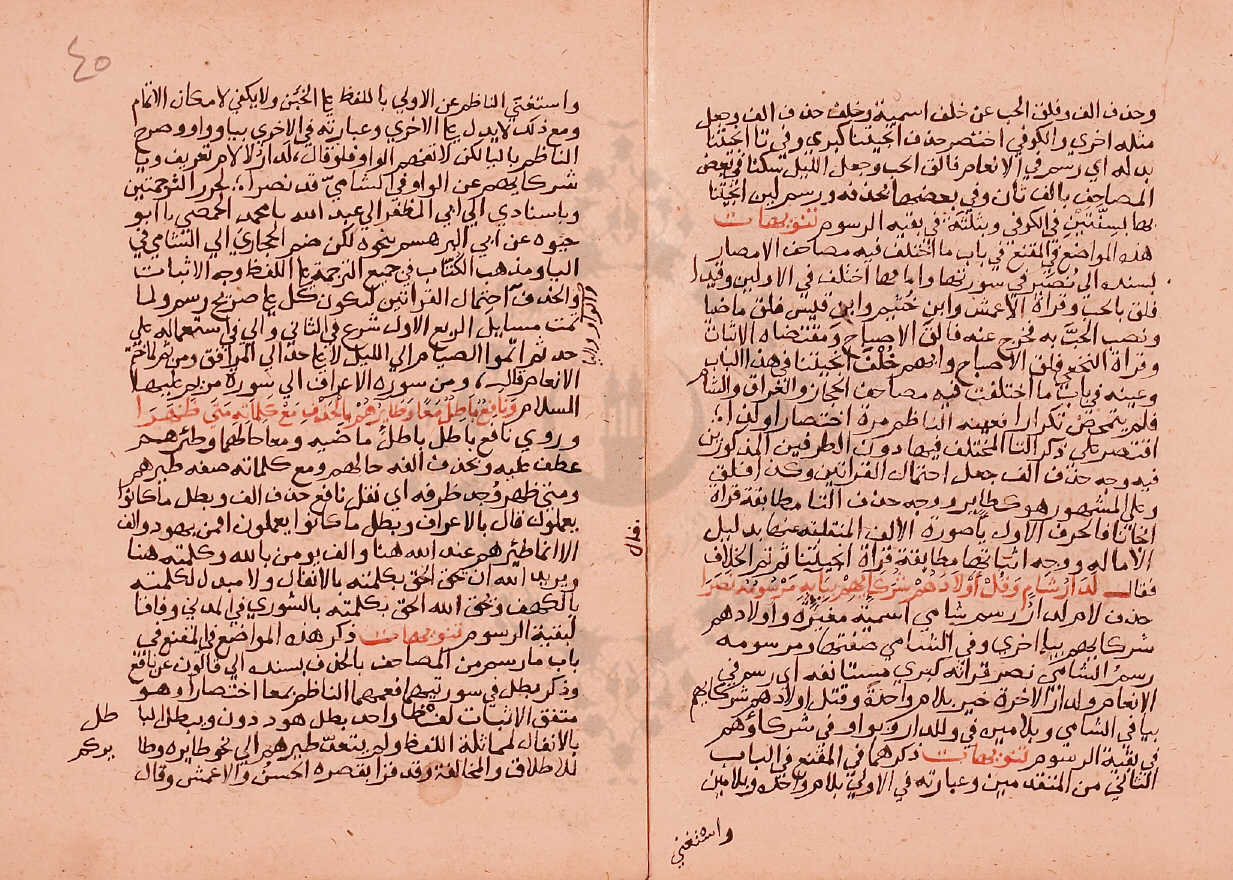 وحذف الف وفلق الحب عن خلف اسمية وخلف حذف الف وجعل
مثله اخري والكوفي اختصر حذف انجيتنا كبري وفي تا انجيتنا
بدله اي رسم في الانعام فالق الحب وجعل الليل سكنا في بعض
المصاحف بالف ثان وفي بعضها بحذفه ورسم لين انجيتنا
بها بسنتين في الكوفي وبثلثة في بقية الرسوم تنويهات
هذه المواضع في المقنع في باب ما اختلف فيه مصاحف الامصار
بسنده الي نصير في سورتها وامامها اختلف في الاولين وقيد
فلق بالحب وقراة الاعمش وابن خثيم وابن قيس فلق ماضيا
ونصب الحب به فخرج عنه فالق الاصباح ومقتضاه الاثبات
وقراة النخعي فلق الاصباح وابهم خلف انجيتنا في هذا الباب
وعينه في باب ما اختلفت فيه مصاحف الحجاز والعراق والشام
فلم يتمحض تكرارا فعينه الناظم مرة اختصارا ولذا
اقتصر علي ذكر التا المختلف فيها دون الطرفين المذكورين
فيه وجه حذف الف جعل احتمال القراتين وكذا فلق
وعلي المشهور هو كطاير ووجه حذف التا مطابقة قراة
انجانا فالحرف الاول يا صورة الالف المنقلبة عنها بدليل
الامالة ووجه اثباتها مطابقة قراة انجيتنا ثم تمم الخلاف
فقال لدار شام وقل اولادهم شركايهم بياء به مرسومه نصرا
حذف لام لدار رسم شامي اسمية مغيرة واولادهم
شركايهم بيا اخري وفي الشامي صفتها ومرسومه
رسم الشامي نصر قراته كبري مستانفة اي رسم في
الانعام ولدار الاخرة خير بلام واحدة وقتل اولادهم شركايهم
بيا في الشامي وبلامين في وللدار وبواو في شركاؤهم
في بقية الرسوم تنويهات ذكرهما في المقنع في الباب
الثاني من المتقدمين وعبارته في الاولي بلام واحدة وبلامين
واستغني
فقال
٤٥
واستغني الناظم عن الاولي باللفظ علي الخبن ولا يكفي لامكان الاتمام
ومع ذلك لا يدل علي الاخري وعبارته في الاخري بيا وواو وصرح
الناظم باليا لكن لا تفهم الواو فلو قال لدار لام تعريف ويا
شركايهم عن الواو في الشامي قد نصرا لحرر الترجمتين
وباسنادي الي ابي المظفر الي عبد الله بن محمد الحمصي يا ابو
حيوه عن ابي البرهسم بنحوه لكن ضم الحجازي الي الشامي في
اليا ومذهب الكتاب في جميع الترجمة علي اللفظ وجه الاثبات
والحذف احتمال القراتين ليكون كل علي صريح رسم ولما
والواو واليا
تمت مسايل الربع الاول شرع في الثاني والي في استعماله علي
حد ثم اتموا الصيام الي الليل لا علي حد الي المرافق ومن ثم خاتم
الانعام قال ومن سورة الاعراف الي سورة مريم عليها
السلام ونافع باطل معا وطايرهم بالحذف مع كلماته متي ظهرا
وروي نافع باطل باطل ماضيه ومعا حاطهما وطئرهم
عطف عليه وبحذف الفه حالهم ومع كلماته صفه طيرهم
ومتي ظهر وجد ظرفه اي نقل نافع حذف الف وبطل ما كانوا
يعملون قال بالاعراف وبطل ما كانوا يعملون افمن بهود والف
الا انما طئرهم عند الله هنا والف يومن بالله وكلمته هنا
ويريد الله ان يحق الحق بكلمته بالانفال ولا مبدل لكلمته
بالكهف ويحق الله الحق بكلمته بالشوري في المدني وفاقا
لبقية الرسوم تنويهات ذكر هذه المواضع في المقنع في
باب ما رسم من المصاحف بالحذف بسنده الي قالون عن نافع
وذكر بطل في سورتيهما فعمهما الناظم بمعا اختصارا وهو
متفق الاثبات لفظا واحد بطل هود دون ويبطل الباطل
بالانفال لمماثلة اللفظ ولم يتعد طيرهم الي نحو طايره وطايركم
للاطلاق والمخالفة وقد قرا بقصره الحسن والاعمش وقال